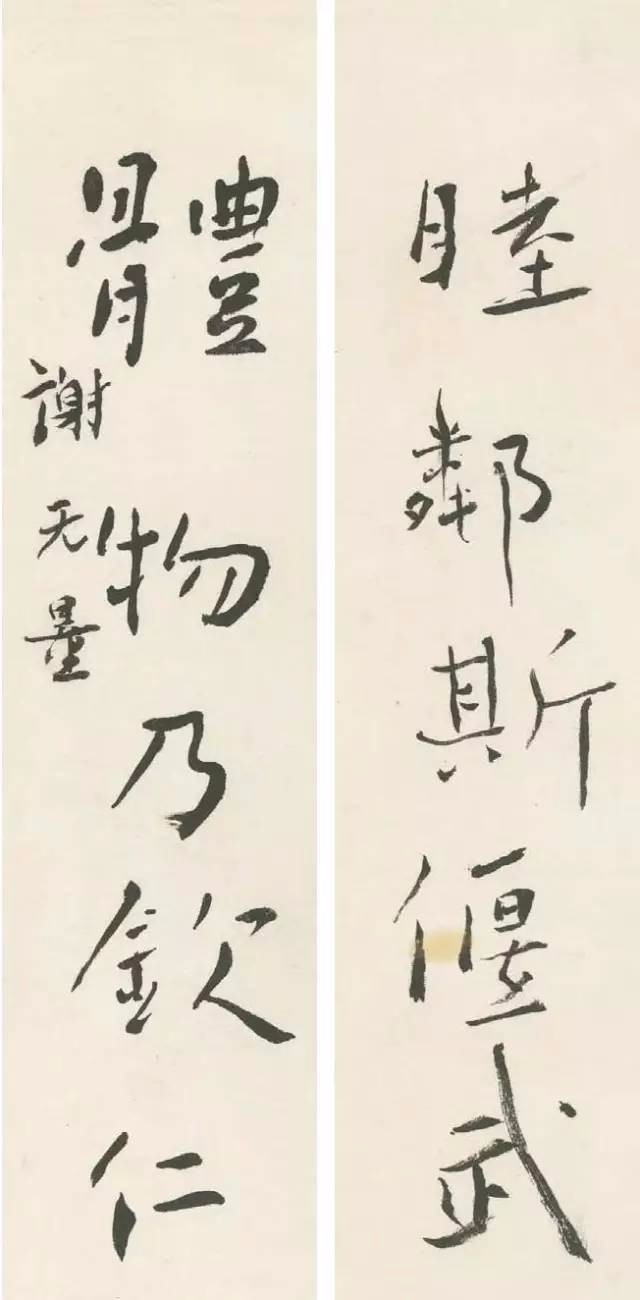 睦鄰斯偃武
體物乃欽仁
謝无量